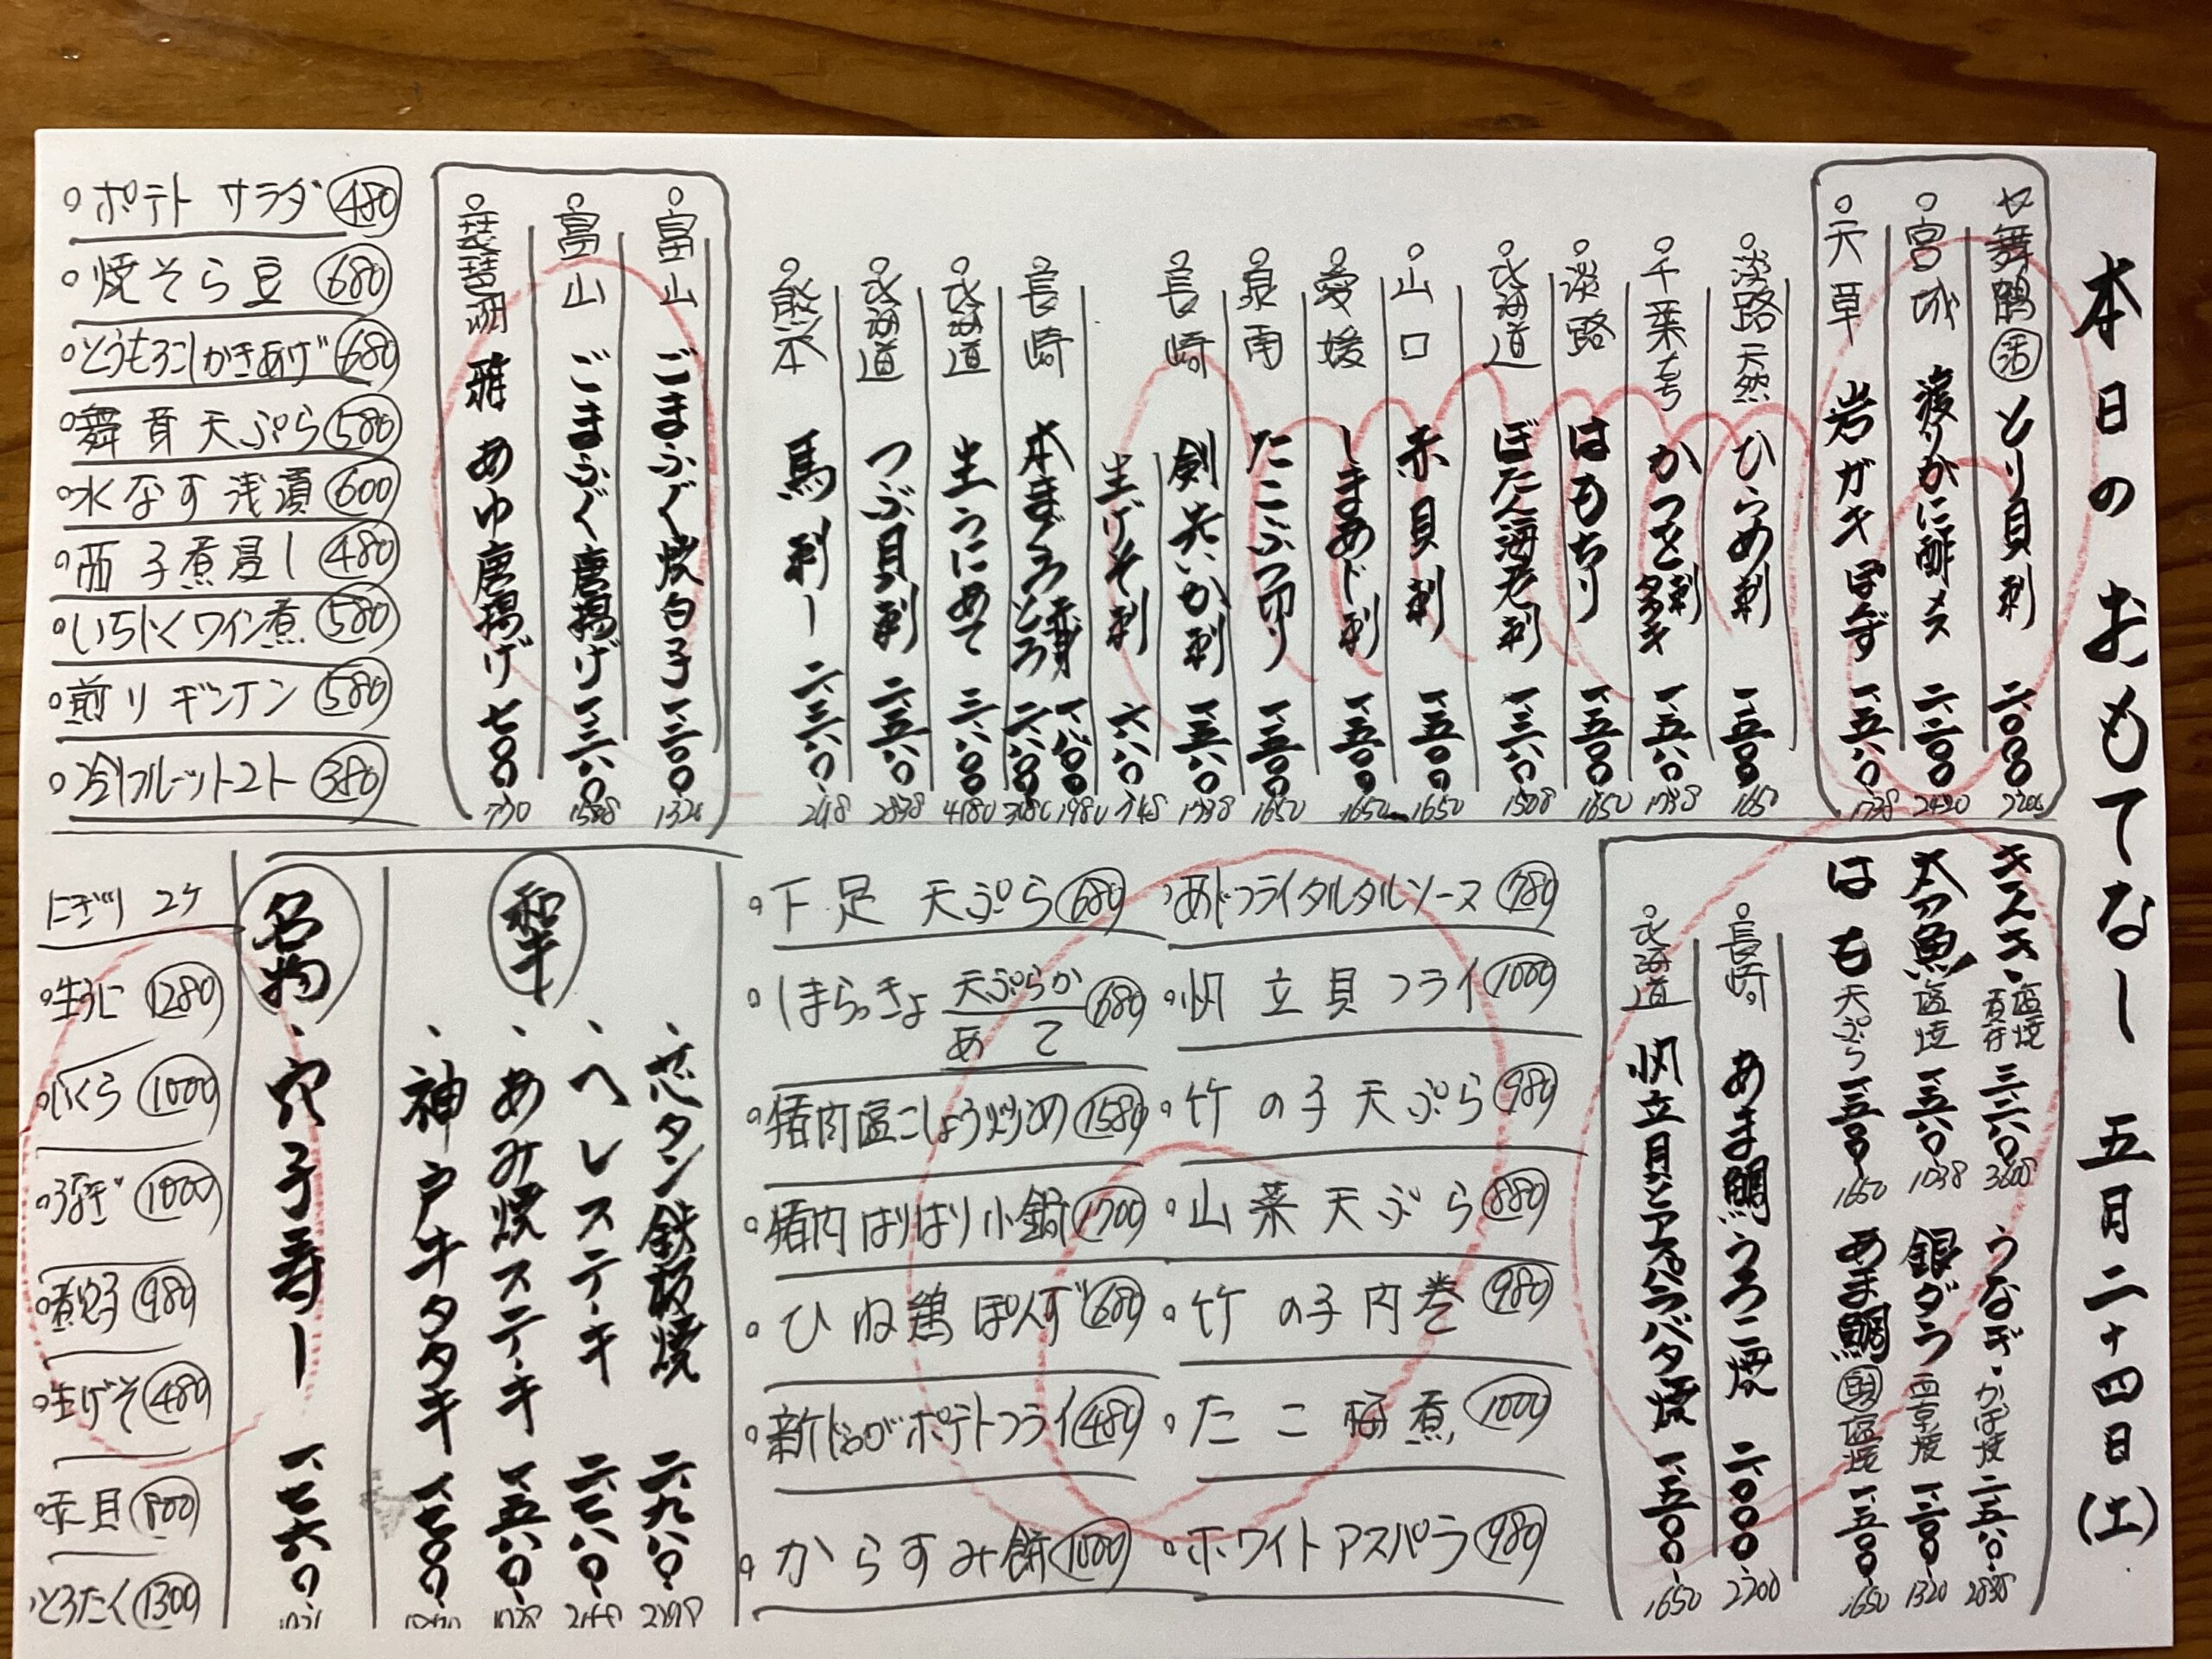 本日のおもてなし 五月二十四日(土)
舞鶴 活 とり貝刺 二、〇〇〇 2200
宮城 渡りがに酢 メス 二、二〇〇 2420
天草 岩ガキ ぽんず 一、五八〇 1738
淡路 天然 ひらめ刺 一、五〇〇 1650
千葉 かつを刺 タタキ 一、五八〇 1738
淡路 はもちり 一、五〇〇 1650
北海道 ぼたん海老刺 一、三八〇 1508
山口 赤貝刺 一、五〇〇 1650
愛媛 しまあじ刺 一、五〇〇 1650
泉南 たこぶつ切り 一、五〇〇 1650
長崎 剣先いか刺 一、五八〇 1738
生げそ刺 六八〇 748
長崎 本まぐろ 赤身 一、八〇〇 1980
とろ 二、八〇〇 3080
北海道 生うに 三、八〇〇 4180
北海道 つぶ貝刺 二、五八〇 2838
熊本 馬刺し
富山 ごまふぐ 炊白子 一、二〇〇 1320
富山 ごまふぐ唐揚げ
琵琶湖 稚あゆ唐揚げ 七〇〇 770
ポテトサラダ 480
焼そら豆 680
とうもろこしかきあげ 680
舞茸天ぷら 580
水なす浅漬 600
茄子煮浸し 480
いちじくワイン煮 580
煎りギンナン 580
冷しフルーツトマト 380
塩焼
煮付 三、二八〇 3608
太刀魚 塩焼
はも 天ぷら 一、五〇〇 1650
うなぎ・かば焼 二、五八〇 2838
銀ダラ 西京焼 一、二〇〇 1320
あま鯛 塩焼 一、五〇〇 1650
長崎 あま鯛うろこ焼 二、〇〇〇 2200
北海道 帆立貝とアスパラバター焼 一、五〇〇 1650
あじフライタルタルソース 780
帆立貝フライ 1000
竹の子天ぷら 980
山菜天ぷら 880
竹の子肉巻 980
たこ 煮 1000
ホワイトアスパラ 980
下足天ぷら 680
しまらっきょ 天ぷらか
あて 680
猪肉塩こしょう炒め 1580
猪肉はりはり小鍋 1700
ひね鶏ぽんず 680
新じゃがポテトフライ 480
からすみ餅 1000
和牛
芯タン鉄板焼 二、九八〇
ヘレステーキ 二、七八〇
あみ焼ステーキ 一、五八〇
神戸牛タタキ 一、七〇〇
名物
穴子寿し 一、七六〇
にぎり 2ケ
生うに 1280
いくら 1000
うなぎ 1000
煮穴子 980
生げそ 480
赤貝 800
とろたく 1300